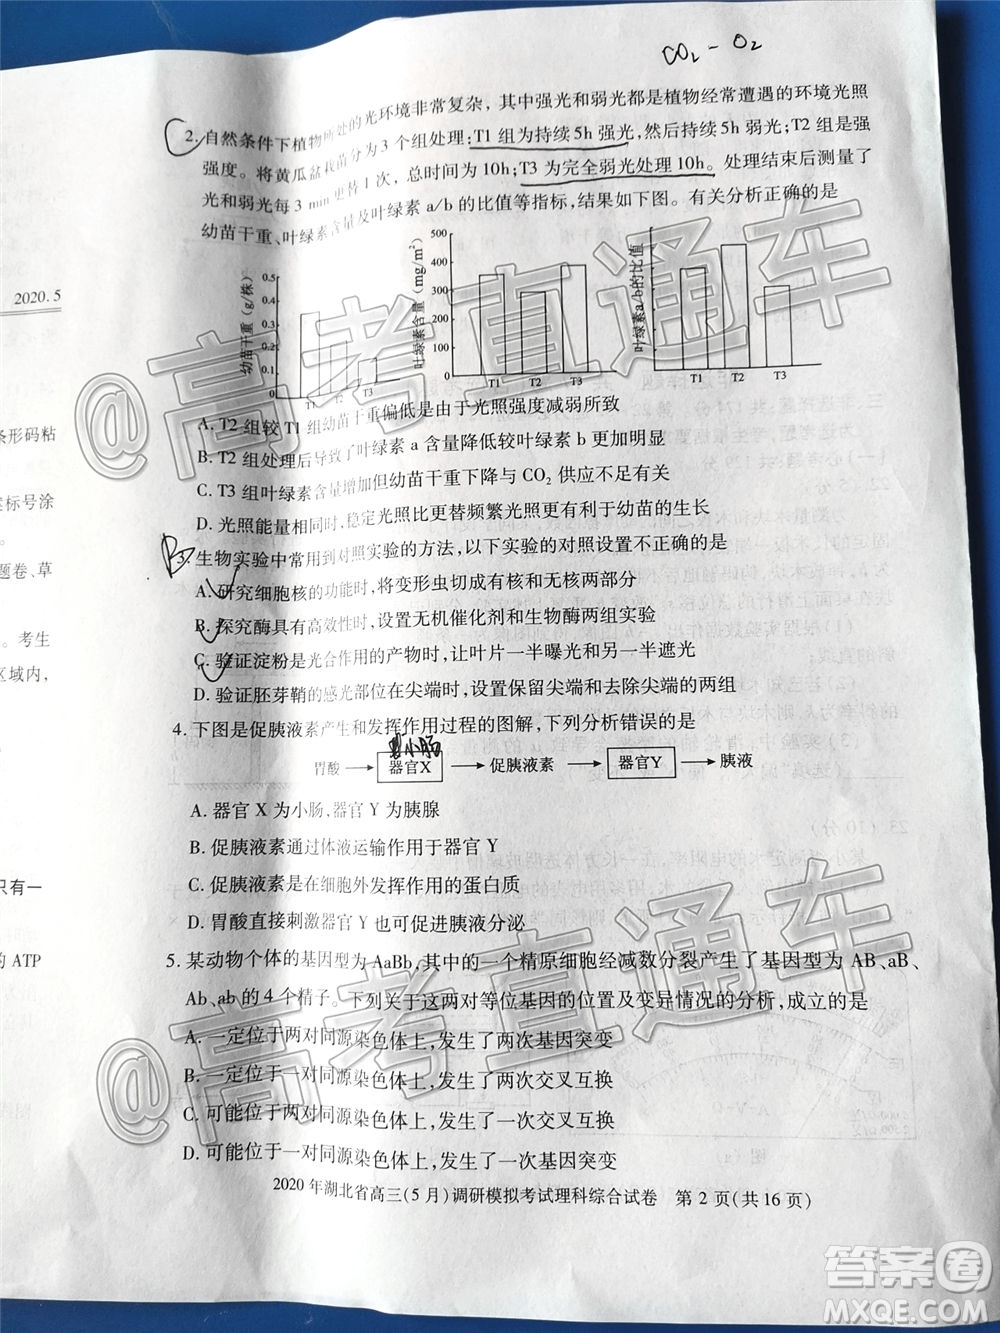 CO₂ - O₂
2. 自然条件下植物所处的光环境非常复杂，其中强光和弱光都是植物经常遭遇的环境光照
强度。将黄瓜盆栽苗分为3个组处理：T1 组为持续 5h 强光，然后持续 5h 弱光；T2 组是强
光和弱光每 3 min 更替 1 次，总时间为 10h；T3 为完全弱光处理 10h。处理结束后测量了
幼苗干重、叶绿素含量及叶绿素 a/b 的比值等指标，结果如下图。有关分析正确的是
幼苗干重(g/株)
0.5
0.4
0.3
0.2
0.1
T1
T2
T3
叶绿素含量(mg/m²)
500
400
300
200
100
0
T1 T2 T3
叶绿素a/b的比值
T1 T2 T3
A. T2 组较 T1 组幼苗干重偏低是由于光照强度减弱所致
B. T2 组处理后导致了叶绿素 a 含量降低较叶绿素 b 更加明显
C. T3 组叶绿素含量增加但幼苗干重下降与 CO₂ 供应不足有关
D. 光照能量相同时，稳定光照比更替频繁光照更有利于幼苗的生长
B
3. 生物实验中常用到对照实验的方法，以下实验的对照设置不正确的是
A. 研究细胞核的功能时，将变形虫切成有核和无核两部分
B. 探究酶具有高效性时，设置无机催化剂和生物酶两组实验
C. 验证淀粉是光合作用的产物时，让叶片一半曝光和另一半遮光
D. 验证胚芽鞘的感光部位在尖端时，设置保留尖端和去除尖端的两组
4. 下图是促胰液素产生和发挥作用过程的图解，下列分析错误的是
小肠
胃酸 → 器官X → 促胰液素 → 器官Y → 胰液
A. 器官 X 为小肠，器官 Y 为胰腺
B. 促胰液素通过体液运输作用于器官 Y
C. 促胰液素是在细胞外发挥作用的蛋白质
D. 胃酸直接刺激器官 Y 也可促进胰液分泌
5. 某动物个体的基因型为 AaBb，其中的一个精原细胞经减数分裂产生了基因型为 AB、aB、
Ab、ab 的 4 个精子。下列关于这两对等位基因的位置及变异情况的分析，成立的是
A. 一定位于两对同源染色体上，发生了两次基因突变
B. 一定位于一对同源染色体上，发生了两次交叉互换
C. 可能位于两对同源染色体上，发生了一次交叉互换
D. 可能位于一对同源染色体上，发生了一次基因突变
2020 年湖北省高三(5 月)调研模拟考试理科综合试卷 第 2 页(共 16 页)
2020.5
条形码粘
标号涂
题卷、草
。考生
区域内，
只有一
的 ATP
@高考直通车
@高考直通车
答案圈
MXQE.COM